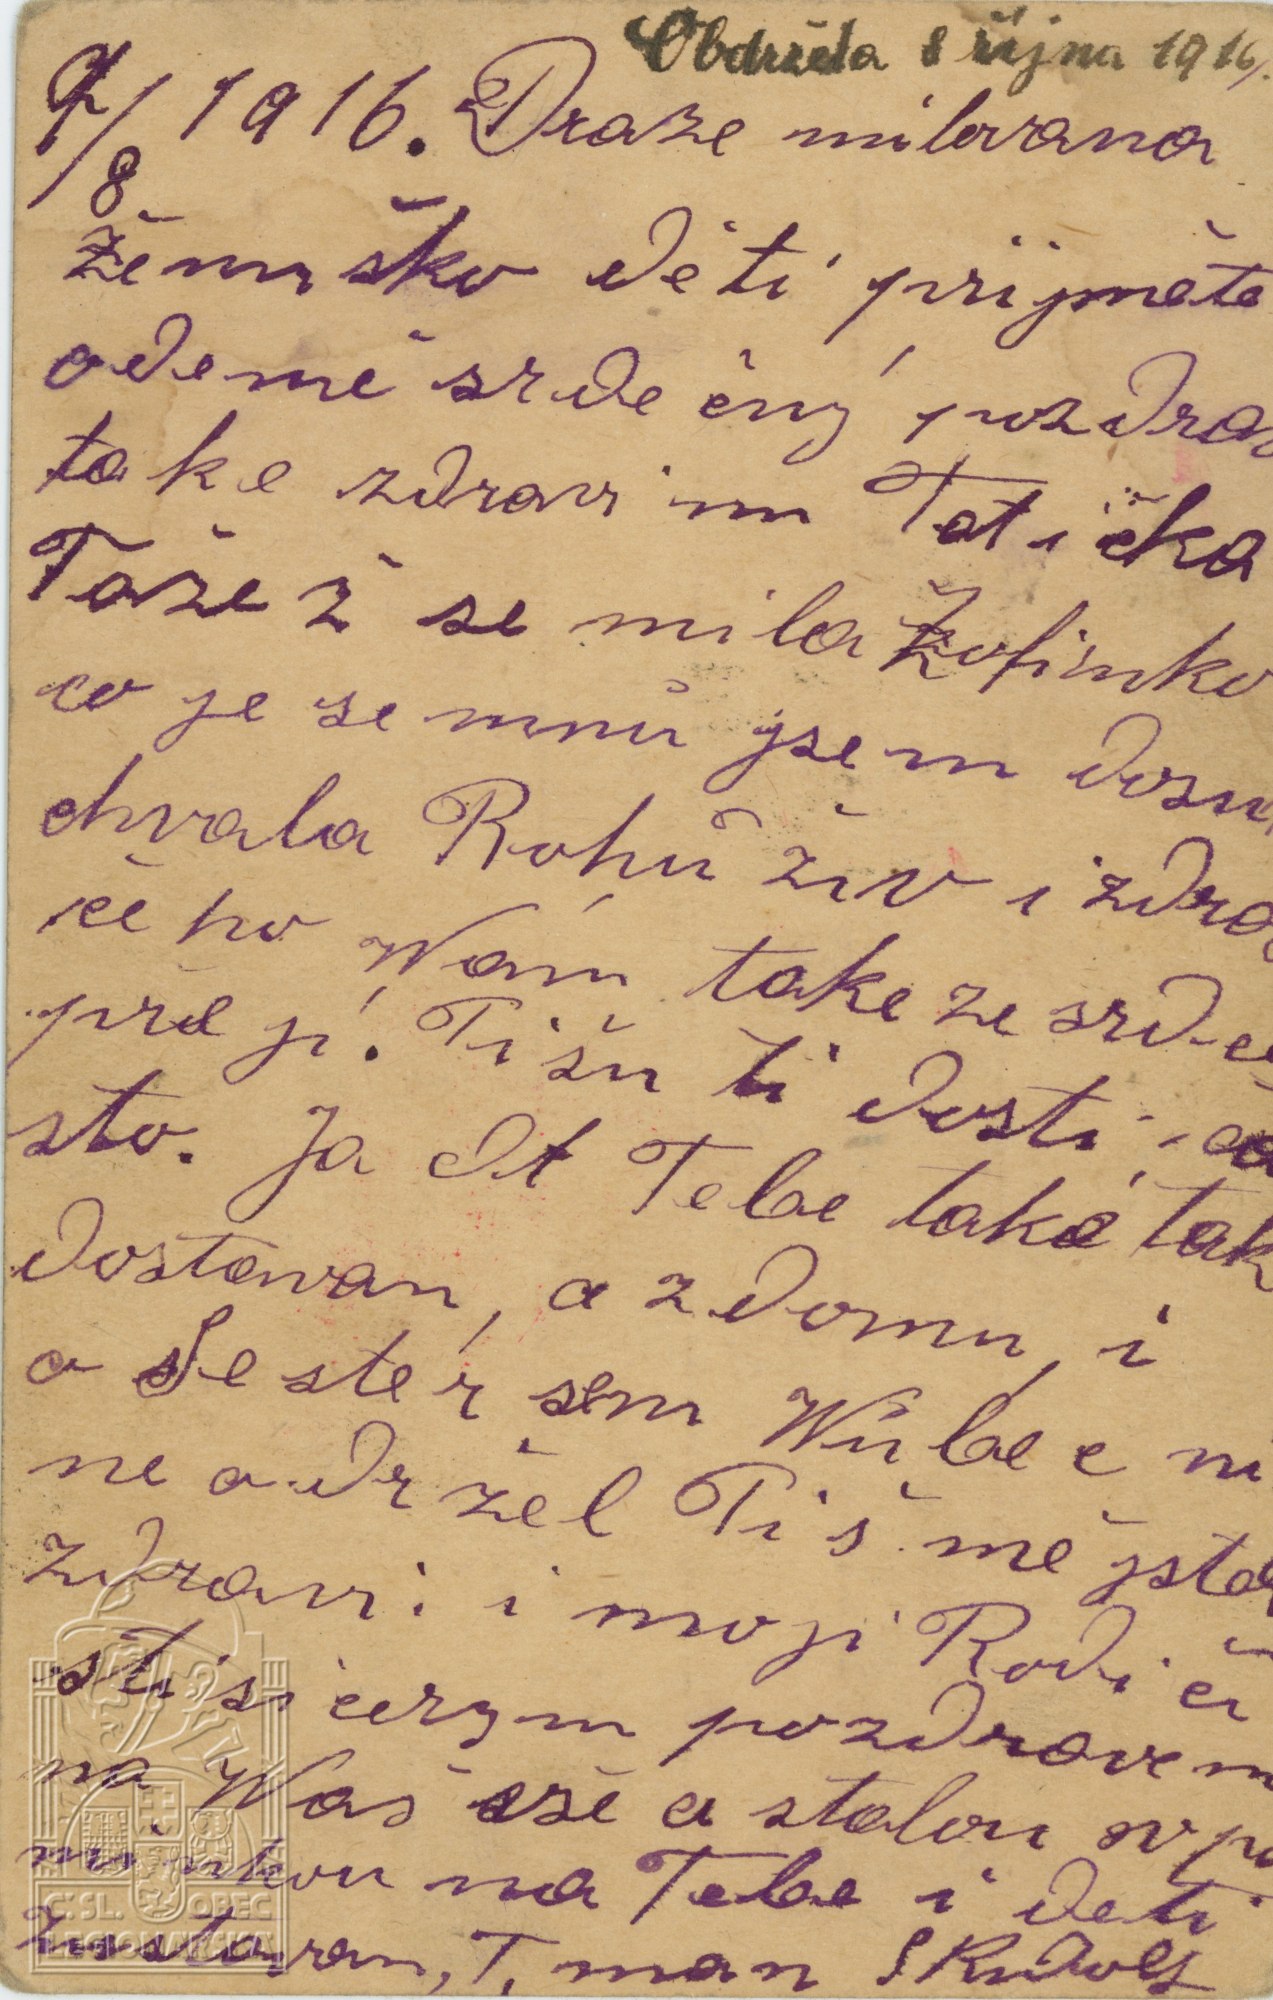 Obdržela 8 října 1916.
7/8 1916. Draze milovana
Ženuško děti přijměte
odemě srdečný pozdrav
take zdravim Tatička
Tažež se mila Žofinko
co je se mnů jsem dosu
chvala Bohů živ i zdrav
čeho Wám take ze srdce
přeji. Pišu ti dosti ča
sto. Ja od Tebe také tak
dostavan, a z domu, i
o Sestér sem Wůbec ni
neodržel Piš mě jste
zdravi i moji Rodiči
sti sicerym pozdravem
na Was šeě a stalou vpo
minkou na Tebe i deti
Zustavan, T. man S Rudolf
C.SL. OBEC
LEGIONÁŘSKÁ